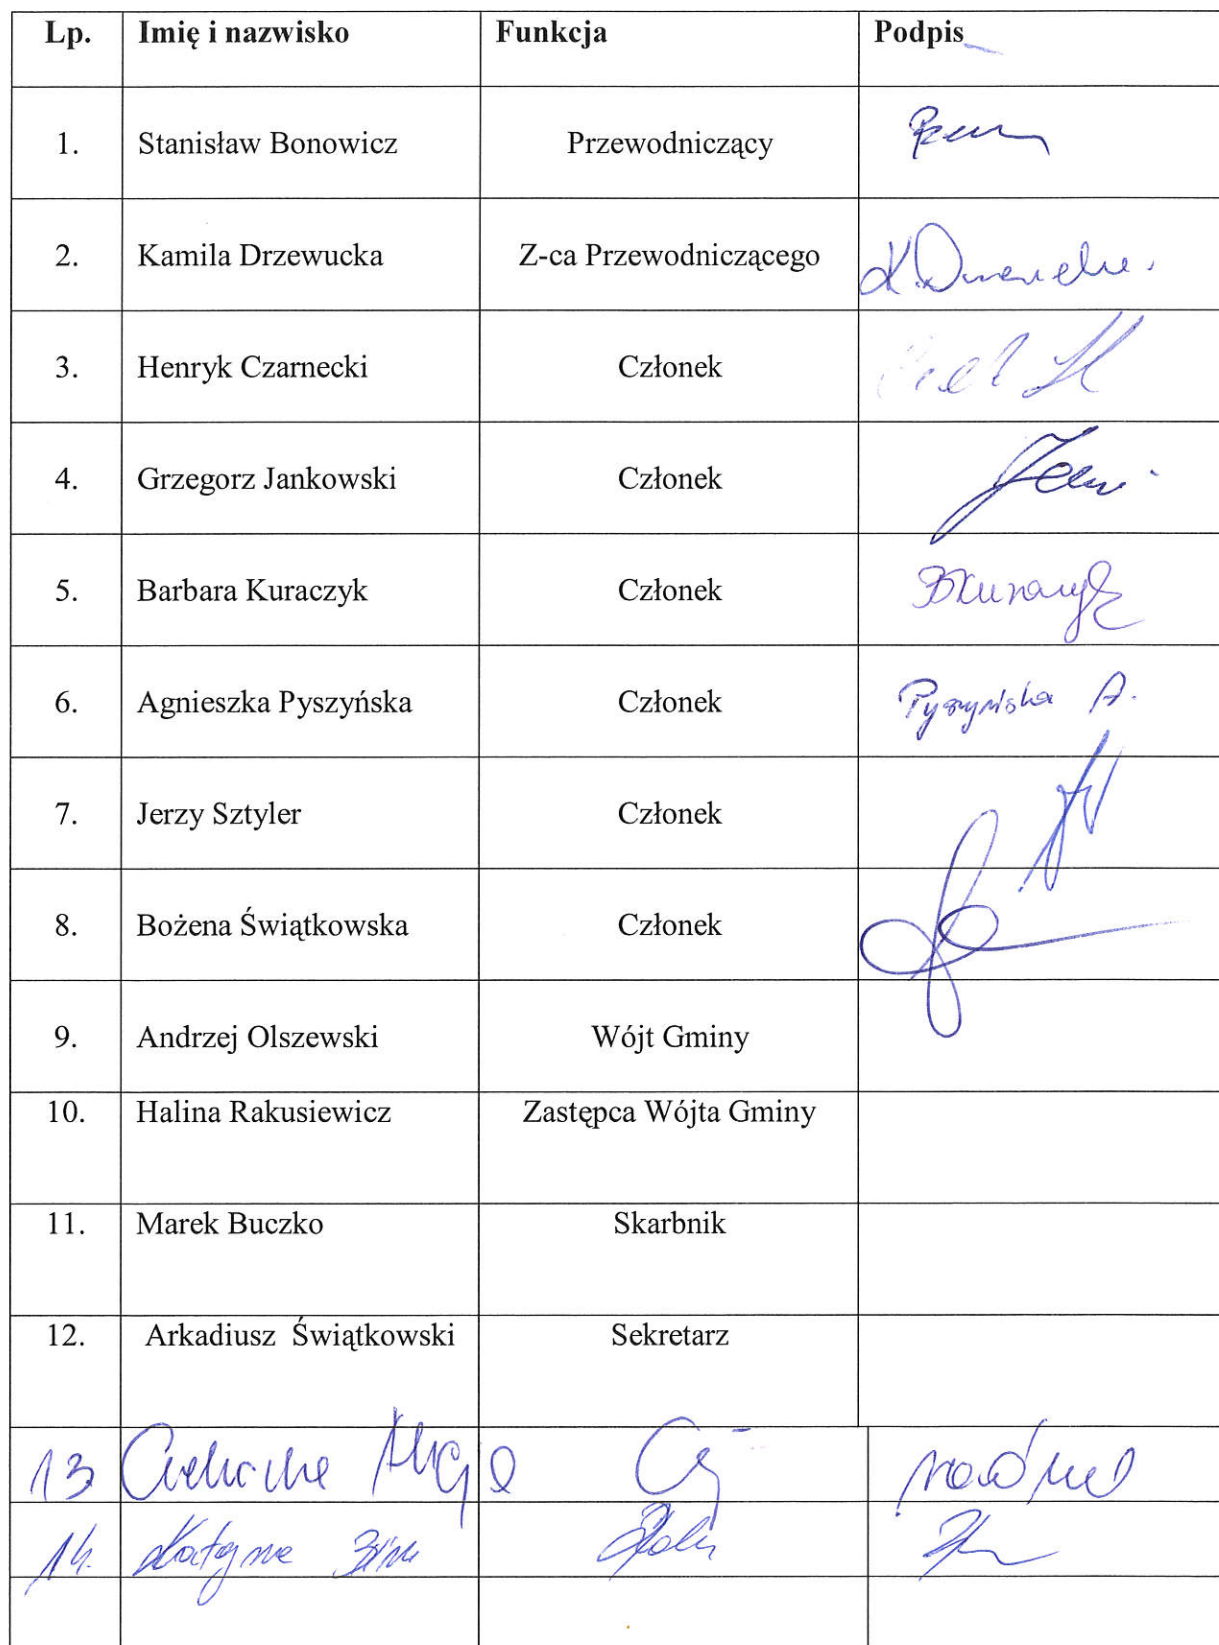 Lp. Imię i nazwisko Funkcja Podpis
1. Stanisław Bonowicz Przewodniczący
2. Kamila Drzewucka Z-ca Przewodniczącego
3. Henryk Czarnecki Członek
4. Grzegorz Jankowski Członek
5. Barbara Kuraczyk Członek
6. Agnieszka Pyszyńska Członek Pyszyńska A.
7. Jerzy Sztyler Członek
8. Bożena Świątkowska Członek
9. Andrzej Olszewski Wójt Gminy
10. Halina Rakusiewicz Zastępca Wójta Gminy
11. Marek Buczko Skarbnik
12. Arkadiusz Świątkowski Sekretarz
13
14.